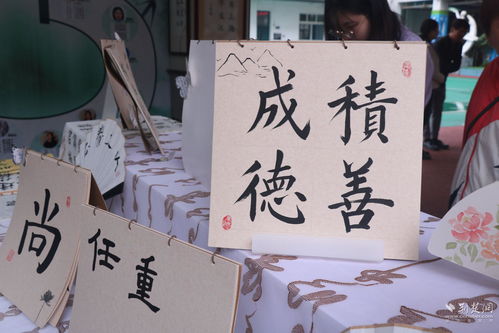 積善
成德
尚
任重
荆楚网